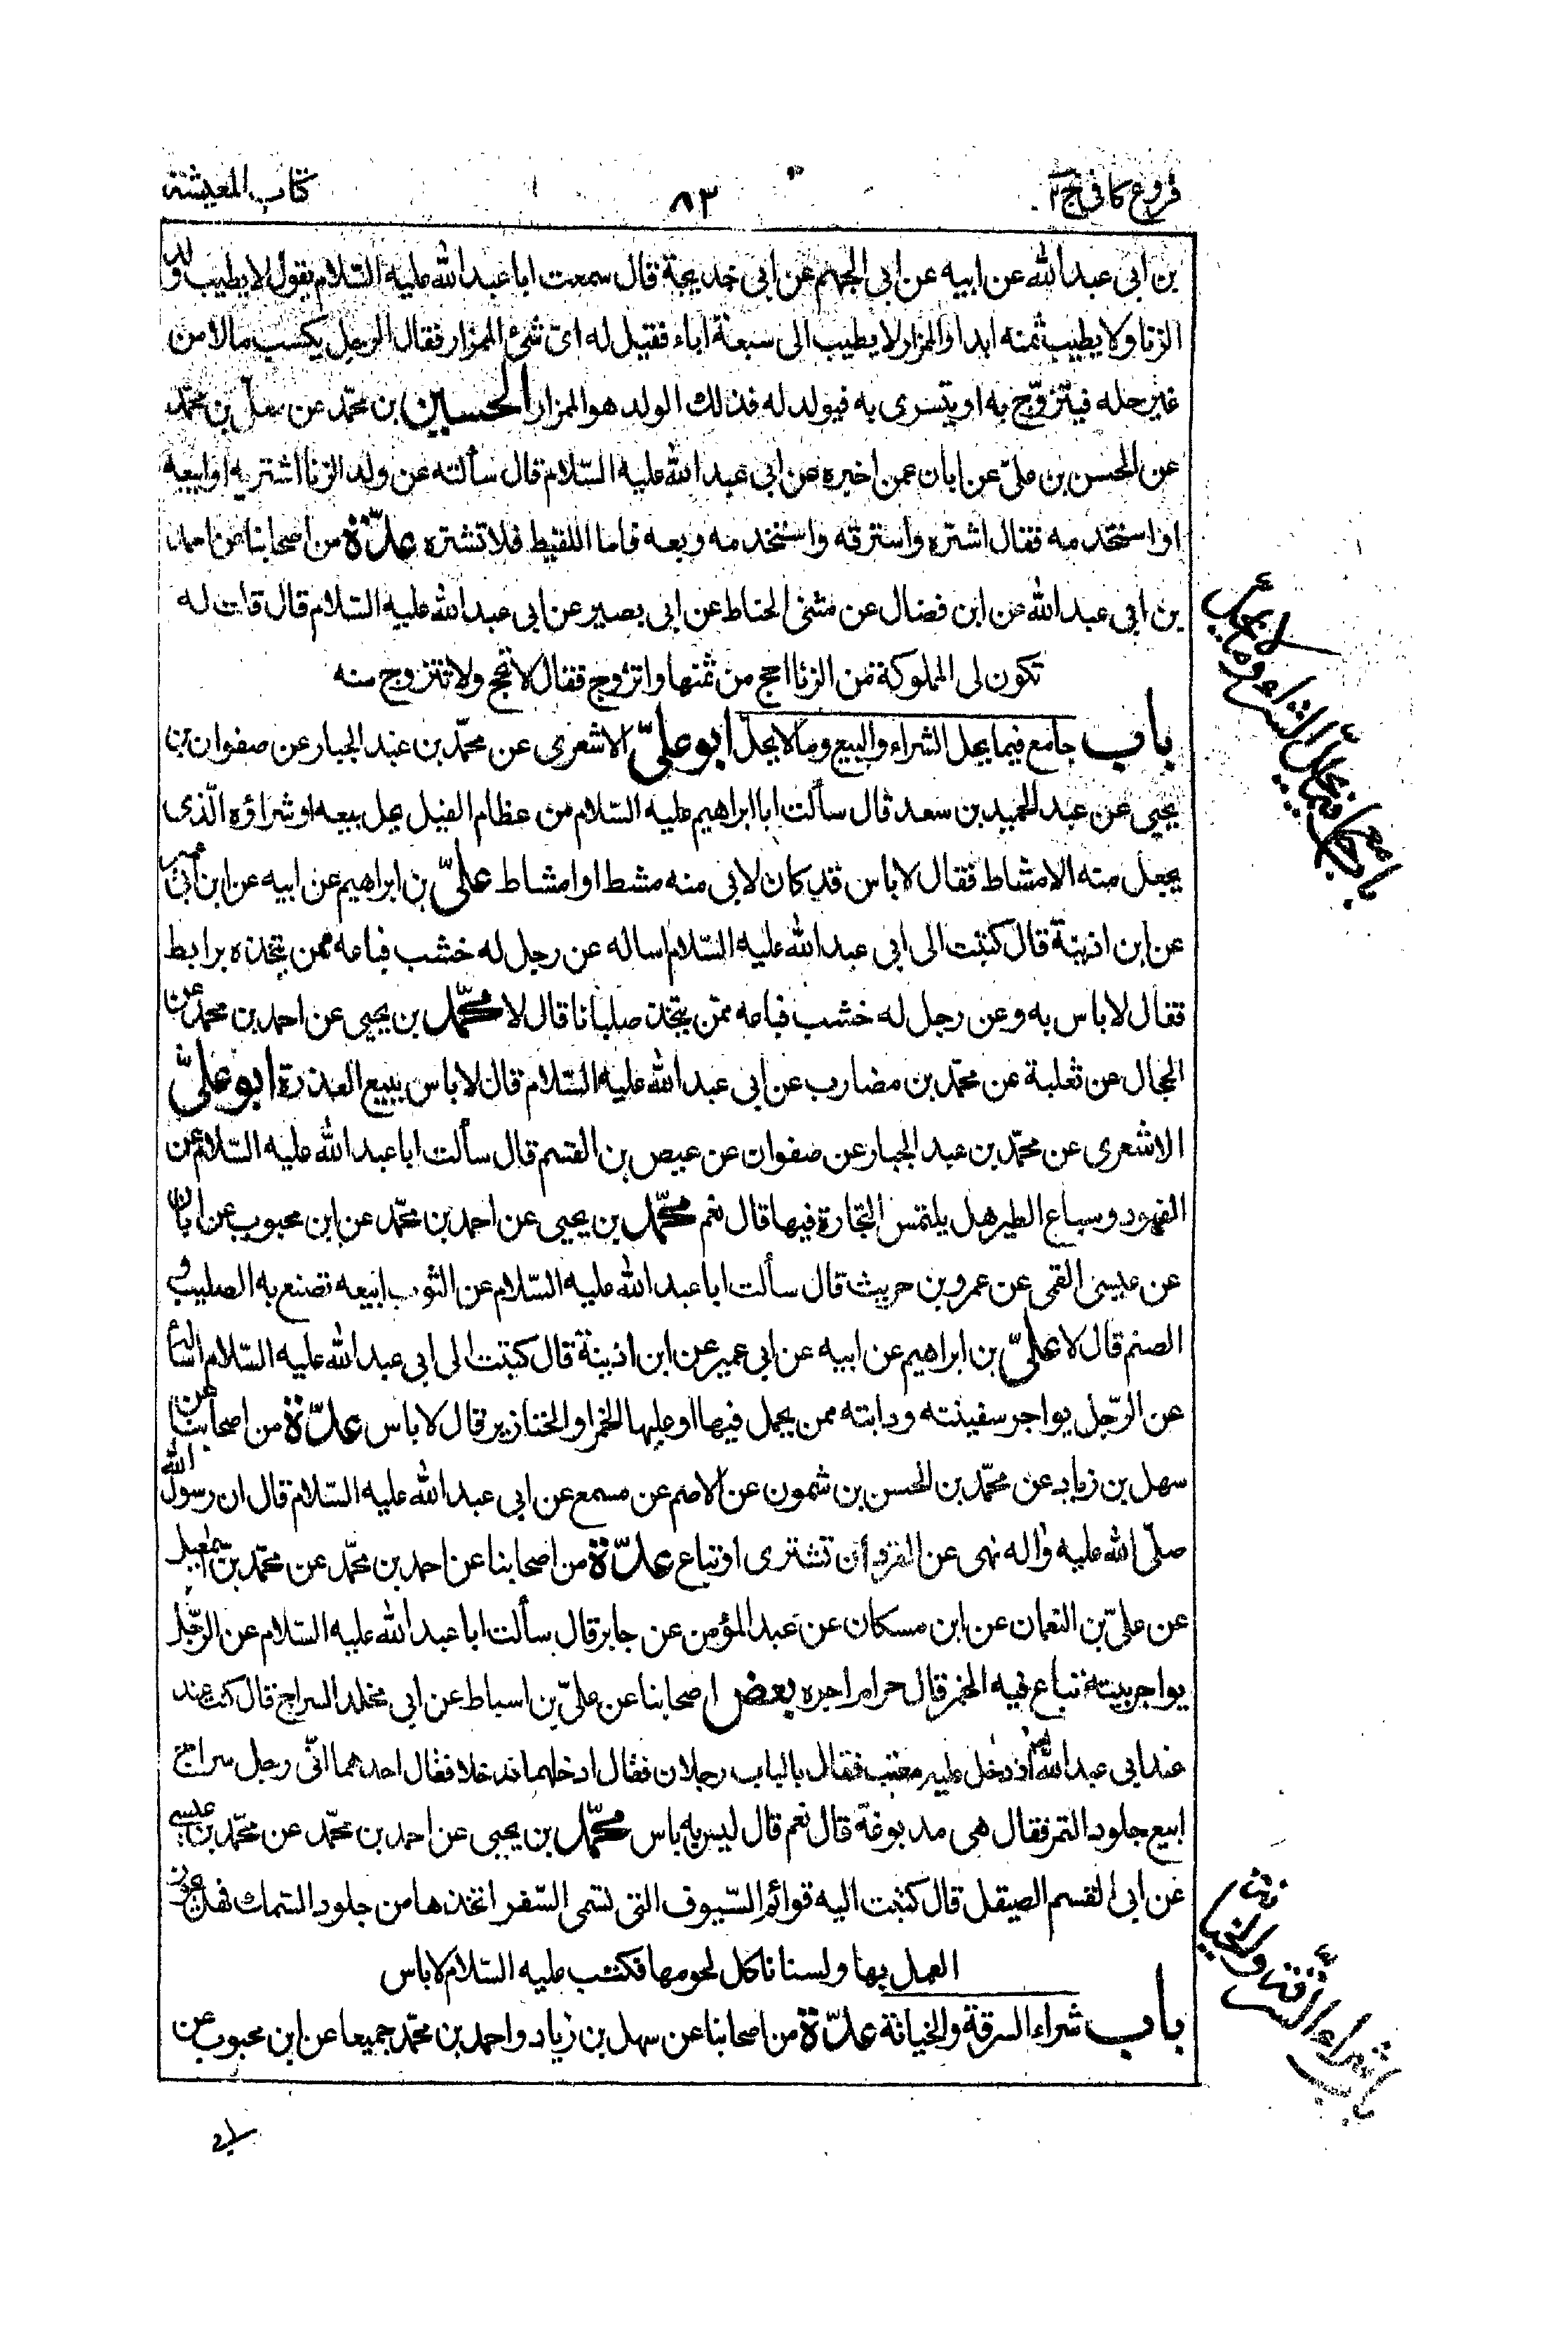 فروع كافى ج٢
٨٣
كتاب المعيشة
بن ابى عبد الله عن ابيه عن ابى الجهم عن ابى خديجة قال سمعت ابا عبد الله عليه السّلام يقول لا يطيب ولد
الزنا ولا يطيب ثمنه ابدا والممزار لا يطيب الى سبعة اباء فقيل له اىّ شئ الممزار فقال الرجل يكسب مالا من
غير حله فيتزوّج به او يتسرى به فيولد له فذلك الولد هو الممزار الحسين بن محمّد عن معلّى بن محمّد
عن الحسن بن علىّ عن ابان عمن اخبره عن ابى عبد الله عليه السّلام قال سألته عن ولد الزنا اشتريه او ابيعه
او استخدمه فقال اشتره واسترقه واستخدمه وبعه فاما اللقيط فلا تشتره عدّة من اصحابنا عن احمد
بن ابى عبد الله عن ابن فضال عن مثنى الحناط عن ابى بصير عن ابى عبد الله عليه السّلام قال قلت له
تكون لى المملوكة من الزنا احج من ثمنها واتزوج فقال لا تحج ولا تتزوج منه
باب جامع فيما يحل الشراء والبيع وما لا يحل ابو علىّ الاشعرى عن محمّد بن عبد الجبار عن صفوان بن
يحيى عن عبد الحميد بن سعد قال سألت ابا ابراهيم عليه السّلام عن عظام الفيل يحل بيعه او شراؤه الّذى
يجعل منه الامشاط فقال لا باس قد كان لابى منه مشط او امشاط علىّ بن ابراهيم عن ابيه عن ابن ابى عمير
عن ابن اذينة قال كتبت الى ابى عبد الله عليه السّلام اساله عن رجل له خشب فباعه ممن يتخذه برابط
فقال لا باس به وعن رجل له خشب فباعه ممّن يتخذ صلبانا قال لا محمّد بن يحيى عن احمد بن محمّد عن
الحجال عن ثعلبة عن محمّد بن مضارب عن ابى عبد الله عليه السّلام قال لا باس ببيع العذرة ابو علىّ
الاشعرى عن محمّد بن عبد الجبار عن صفوان عن عيص بن القسم قال سألت ابا عبد الله عليه السّلام عن
الفهود وسباع الطير هل يلتمس التجارة فيها قال نعم محمّد بن يحيى عن احمد بن محمّد عن ابن محبوب عن ابان
عن عيسى القمى عن عمرو بن حريث قال سألت ابا عبد الله عليه السّلام عن التوت ابيعه تصنع به الصليب و
الصنم قال لا علىّ بن ابراهيم عن ابيه عن ابى عمير عن ابن اذينة قال كتبت الى ابى عبد الله عليه السّلام اسأله
عن الرّجل يواجر سفينته ودابته ممن يحمل فيها او عليها الخمر او الخنازير قال لا باس عدّة من اصحابنا عن
سهل بن زياد عن محمّد بن الحسن بن شمون عن الاصم عن مسمع عن ابى عبد الله عليه السّلام قال ان رسول الله
صلّى الله عليه واله نهى عن القرد ان تشترى او تباع عدّة من اصحابنا عن احمد بن محمّد عن محمّد بن اسمعيل
عن علىّ بن النعمان عن ابن مسكان عن عبد المؤمن عن جابر قال سألت ابا عبد الله عليه السّلام عن الرّجل
يواجر بيته تباع فيه الخمر قال حرام اجره بعض اصحابنا عن علىّ بن اسباط عن ابى مخلد السراج قال كنت عند
عند ابى عبد الله اذ دخل عليه معتب فقال بالباب رجلان فقال ادخلهما فدخلا فقال احدهما انّى رجل سراج
ابيع جلود النمر فقال هى مدبوغة قال نعم قال ليس به باس محمّد بن يحيى عن احمد بن محمّد عن محمّد بن عيسى
عن ابى القسم الصيقل قال كتبت اليه قوائم السّيوف التى تسمى السّفر اتخذها من جلود السّمك فهل يجوز
العمل بها ولسنا ناكل لحومها فكتب عليه السّلام لا باس
باب شراء السرقة والخيانة عدّة من اصحابنا عن سهل بن زياد واحمد بن محمّد جميعا عن ابن محبوب عن
باب جامع فيما يحلّ الشراء والبيع وما لا يحلّ
باب شراء السّرقة والخيانة